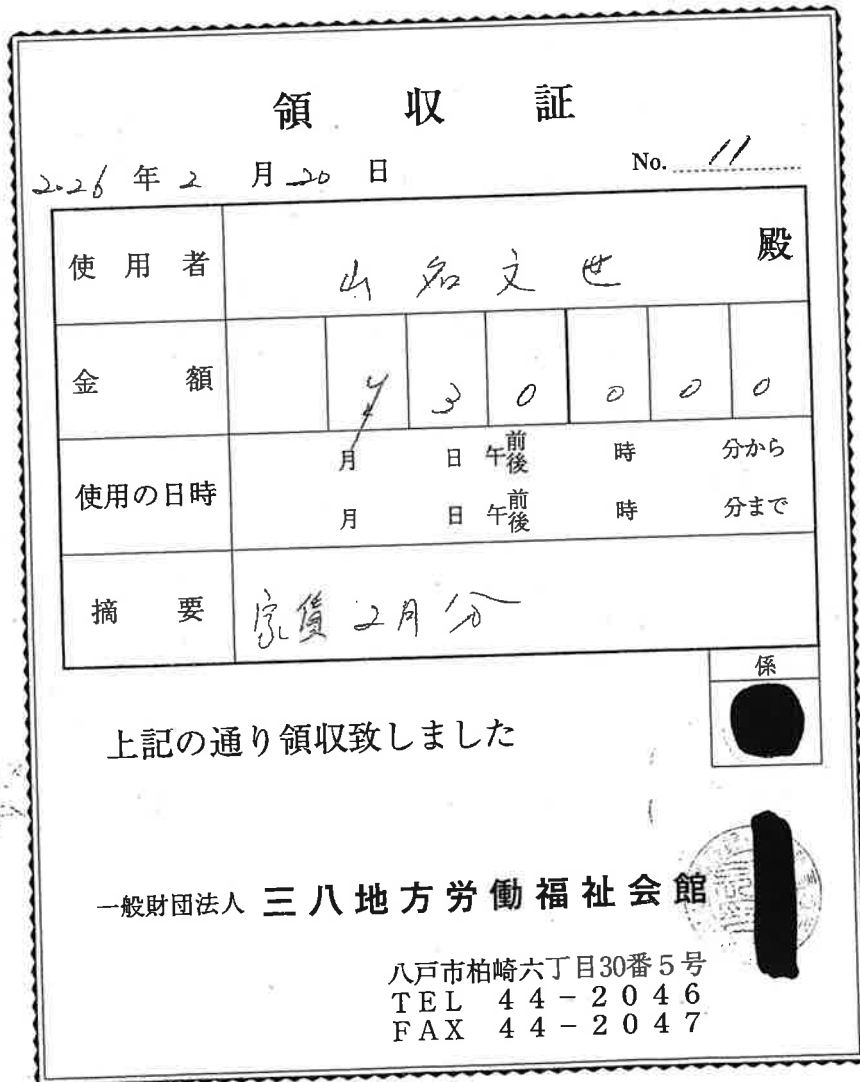 領収証
2026年2月20日 No. 11
使用者 山名文世 殿
金額 ¥30000
使用の日時 月 日 午前後 時 分から
月 日 午前後 時 分まで
摘要 家賃2月分
係
上記の通り領収致しました
一般財団法人 三八地方労働福祉会館
八戸市柏崎六丁目30番5号
TEL 44-2046
FAX 44-2047